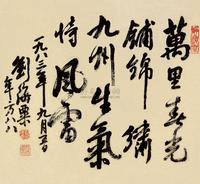 萬里春光
鋪錦繡
九州生氣
恃風雷
一九八三年九月
劉海粟
年方八八